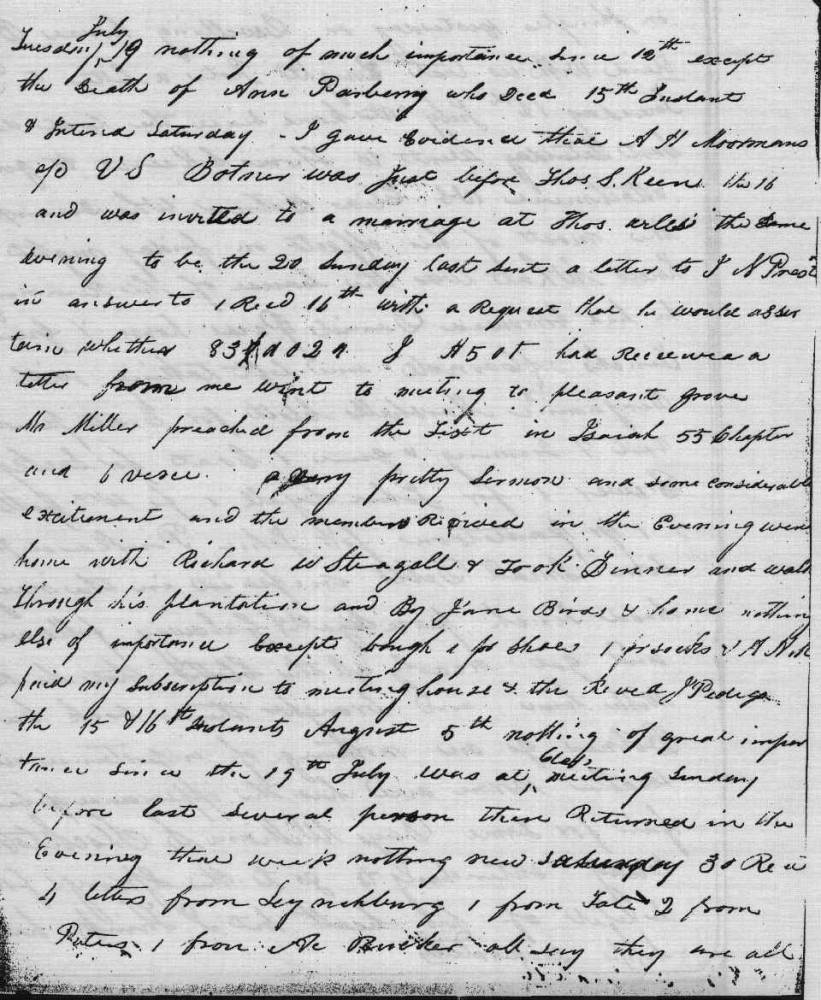 July
Tuesday, 19 nothing of much importance since 12th except
the Death of Ann Pasberry who Deed 15th Instant
& Intered Saturday - I gave Evidence that A H Moormans
a/c V S Botner was Just before Thos. S. Keen the 16
and was invited to a marriage at Thos. the same
Evening to be the 20 Sunday last sent a letter to J N Prest
in answer to 1 Recd 16th with a Request that he would asser
tain whether had Receieved a
letter from me went to meeting to pleasant grove
Mr Miller preached from the Text in Isaiah 55 Chapter
and 6 verse. a very pretty Sermon and some considerable
excitement and the members Recived in the Evening went
home with Richard W Steagall & Took Dinner and walk
Through his plantation and By Jane Birds & home nothing
else of importance Except bough 1 pr Shoes 1 pr socks &
paid my Subscription to meeting house & the Reved J Pedigo
the 15 & 16th Instants August 5th nothing of great impor
tance since the 19th July was at meeting Sunday
before last Several person then Returned in the
Evening that week nothing new saturday 30 Recd
4 letters from Lynchburg 1 from Tate 2 from
Peters 1 from all say they are all